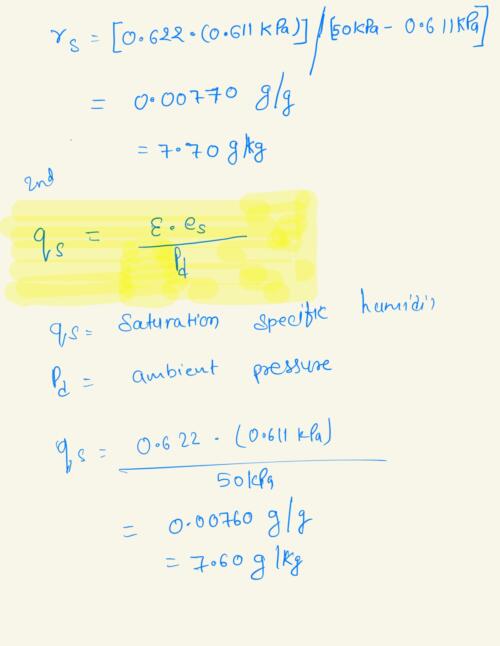 r_s = [0.622 · (0.611 kPa)] / [50kPa - 0.611kPa]
= 0.00770 g/g
= 7.70 g/kg
2nd
q_s = ε · e_s / P_d
q_s = Saturation specific humidi
P_d = ambient pressure
q_s = 0.622 · (0.611 kPa) / 50kPa
= 0.00760 g/g
= 7.60 g/kg